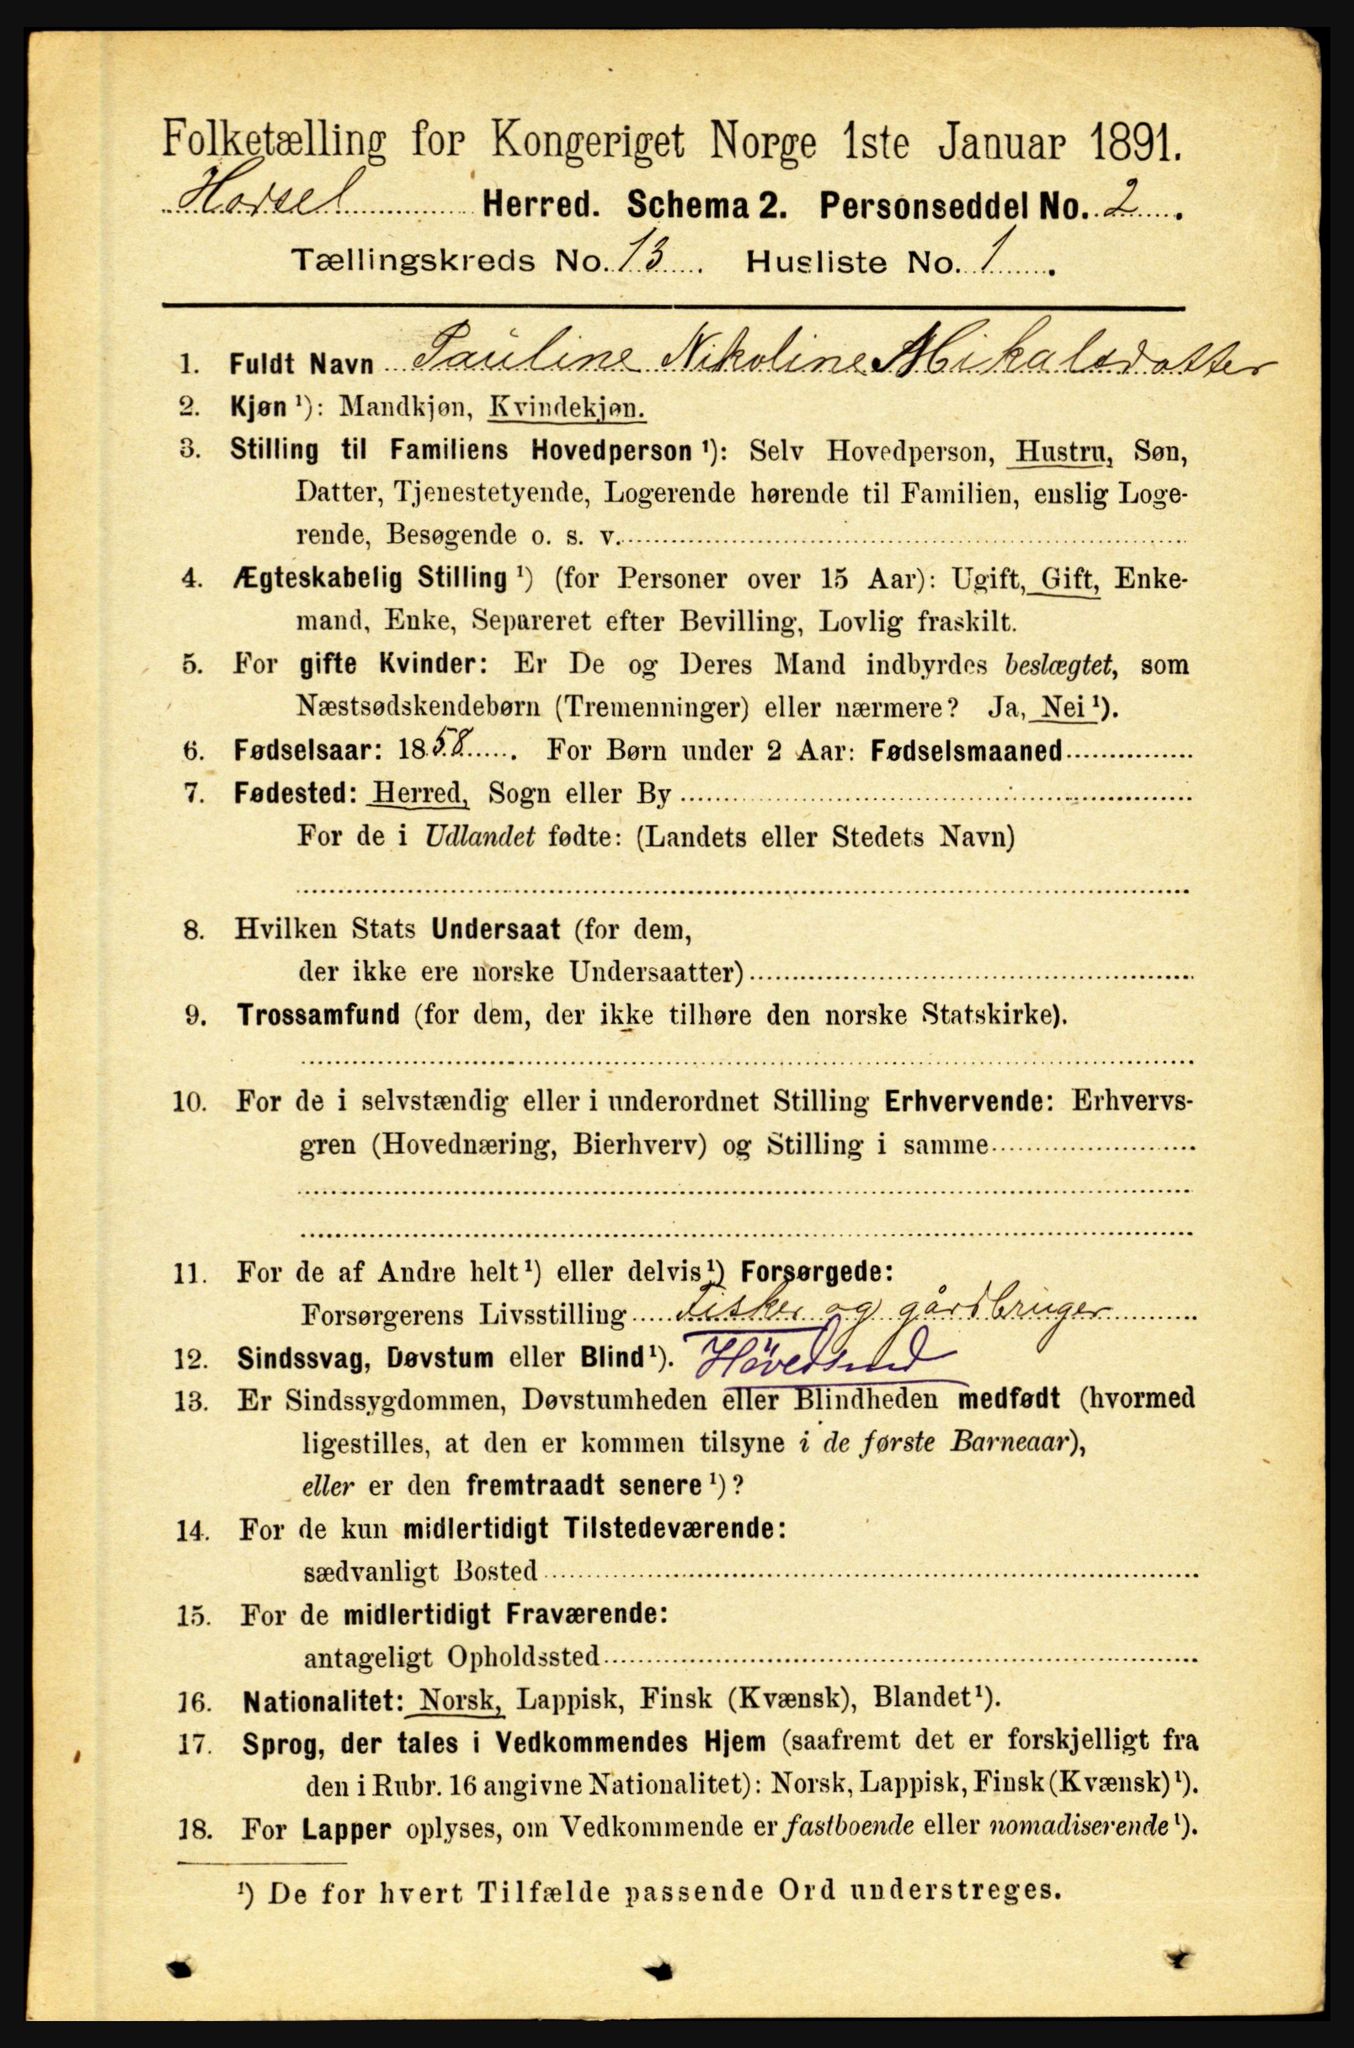 Folketælling for Kongeriget Norge 1ste Januar 1891.
Hadsel Herred. Schema 2. Personseddel No. 2.
Tællingskreds No. 13. Husliste No. 1.
1. Fuldt Navn Pauline Nikoline Mikalsdatter
2. Kjøn ¹): Mandkjøn, Kvindekjøn.
3. Stilling til Familiens Hovedperson ¹): Selv Hovedperson, Hustru, Søn,
Datter, Tjenestetyende, Logerende hørende til Familien, enslig Loge-
rende, Besøgende o. s. v.
4. Ægteskabelig Stilling ¹) (for Personer over 15 Aar): Ugift, Gift, Enke-
mand, Enke, Separeret efter Bevilling, Lovlig fraskilt.
5. For gifte Kvinder: Er De og Deres Mand indbyrdes beslægtet, som
Næstsødskendebørn (Tremenninger) eller nærmere? Ja, Nei ¹).
6. Fødselsaar: 1858. For Børn under 2 Aar: Fødselsmaaned
7. Fødested: Herred, Sogn eller By
For de i Udlandet fødte: (Landets eller Stedets Navn)
8. Hvilken Stats Undersaat (for dem,
der ikke ere norske Undersaatter)
9. Trossamfund (for dem, der ikke tilhøre den norske Statskirke).
10. For de i selvstændig eller i underordnet Stilling Erhvervende: Erhvervs-
gren (Hovednæring, Bierhverv) og Stilling i samme
11. For de af Andre helt ¹) eller delvis ¹) Forsørgede:
Forsørgerens Livsstilling Fisker og gårdbruger
12. Sindssvag, Døvstum eller Blind ¹).
13. Er Sindssygdommen, Døvstumheden eller Blindheden medfødt (hvormed
ligestilles, at den er kommen tilsyne i de første Barneaar),
eller er den fremtraadt senere ¹)?
14. For de kun midlertidigt Tilstedeværende:
sædvanligt Bosted
15. For de midlertidigt Fraværende:
antageligt Opholdssted
16. Nationalitet: Norsk, Lappisk, Finsk (Kvænsk), Blandet ¹).
17. Sprog, der tales i Vedkommendes Hjem (saafremt det er forskjelligt fra
den i Rubr. 16 angivne Nationalitet): Norsk, Lappisk, Finsk (Kvænsk) ¹).
18. For Lapper oplyses, om Vedkommende er fastboende eller nomadiserende ¹).
¹) De for hvert Tilfælde passende Ord understreges.